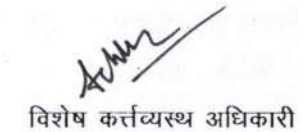 विशेष कर्त्तव्यस्थ अधिकारी